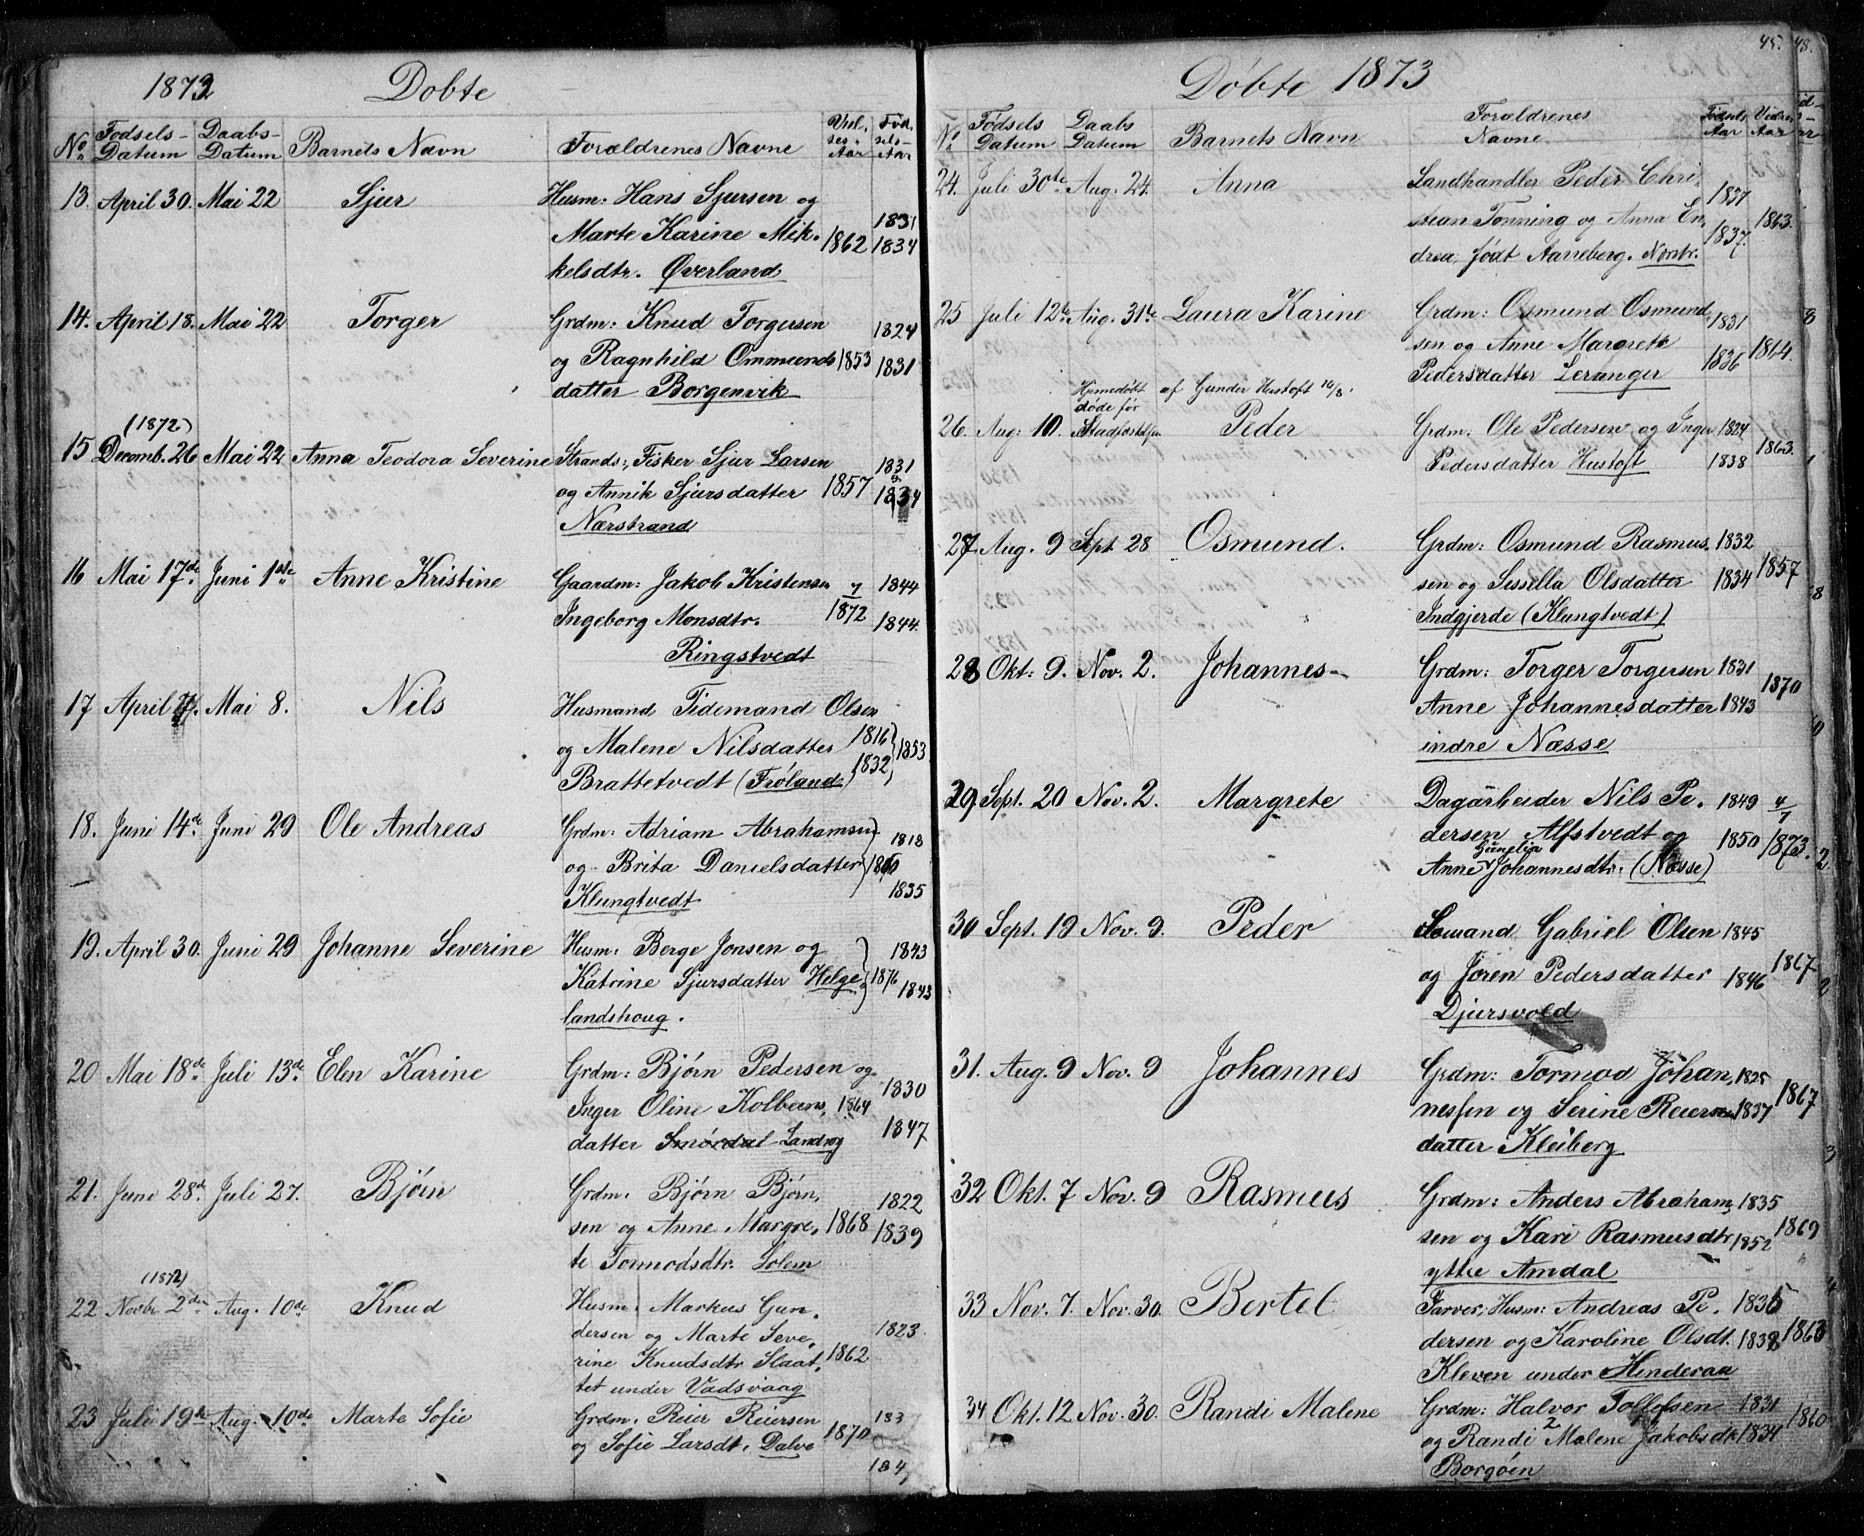 1873 Dobte
No. Fødsels-Datum Daabs-Datum Barnets Navn Forældrenes Navne Viel-ses-Aar Fød-sels-Aar
13. April 30. Mai 22 Sjur Husm: Hans Sjursen og
Marte Karine Mik- 1862 1831 1834
kelsdtr. Øverland
14. April 18. Mai 22 Torger Grdm: Knud Torgersen 1824
og Ragnhild Ommunds 1853 1831
datter Borgenvik
(1872)
15 Decemb. 26 Mai 22 Anna Teodora Severine Strands: Fisker Sjur Larsen 1831
og Annik Sjursdatter 1857 1834
Nærstrand
16 Mai 17de Juni 1ste Anne Kristine Gaardm: Jakob Kristensen 7/1872 1844
Ingeborg Monsdtr. 1844
Ringstvedt
17 April Mai 8. Nils Husmand Tidemand Olsen
og Malene Nilsdatter 1816 1853
Brattetvedt (Frøland) 1832
18. Juni 14de Juni 29 Ole Andreas Grdm: Adriam Abrahamsen 1818
og Brita Danielsdatter 1860
Klungtvedt 1835
19. April 30. Juni 29 Johanne Severine Husm: Berge Jonsen og 1843
Katrine Sjursdatter Helge- 1876 1843
landshoug.
20 Mai 18de Juli 13de Elen Karine Grdm: Bjørn Pedersen og 1830
Inger Oline Kolbeens- 1864
datter Smørdal Landrog 1847
21. Juni 28de Juli 27. Bjørn Grdm. Bjørn Bjørn- 1822
sen og Anne Margre- 1868 1839
te Tormodsdtr. Solem
(1872)
22 Novbr. 2den Aug. 10de Knud Husm: Markus Gun-
dersen og Marte Seve- 1823.
rine Knudsdtr. Slaat- 1862
tet under Vadsvaag
23 Juli 19de Aug. 10de Marte Sofie Grdm. Reier Reiersen 183
og Sofie Larsdt. Dalva 1870
184
45. 48.
Døbte 1873
No. Fødsels Datum Daabs Datum Barnets Navn Forældrenes Navne Fødsels Aar Vielses Aar
24. Juli 30te Aug. 24. Anna Landhandler Peder Chri- 1837
stian Tonning og Anna En- 1837. 1863.
drea, født Aarreberg. Nærstr.
25 Juli 12te Aug. 31te Laura Karine Grdm: Osmund Osmund- 1831
sen og Anne Margrete 1864.
Pedersdatter Leranger 1836
Hjemedøbt af Gunder Hustoft 10/8.
døde før
26. Aug: 10. Stadfæstelsen Peder Grdm. Ole Pedersen og Inger 1824
Pedersdatter Hustoft 1838 1863.
27. Aug. 9 Sept. 28 Osmund. Grdm: Osmund Rasmus- 1832
sen og Sessella Olsdatter 1834 1857
Indgjerde (Klungtvedt)
28 Okt: 9. Nov. 2. Johannes Grdm: Torger Torgersen 1831
Anne Johannesdatter 1843 1870
indre Næsse
29 Sept. 20 Nov. 2. Margrete Dagarbeider Nils Pe- 1849 4/7
dersen Alfstvedt og 1850 1873.
Gunelia
Anne Johannesdtr. (Næsse)
30 Sept. 19 Nov. 9. Peder Sømand Gabriel Olsen 1845
og Joren Pedersdatter 1846 1867
Djursvold
31. Aug. 9 Nov. 9 Johannes Grdm: Tormod Johan- 1825
nessen og Serine Reiers- 1837 1867
datter Kleiberg
32 Okt. 7 Nov. 9 Rasmus Grdm: Anders Abraham- 1835
sen og Kari Rasmusdtr 1852 1869
yttre Amdal
33 Nov. 7. Nov. 30. Bertel Farver, Husm: Andreas Pe- 1835
dersen og Karoline Olsdt. 1838 1863
Kleven under Henderaa
34 Okt. 12 Nov. 30. Randi Malene Grdm: Halvor Tollefsen 1831
og Randi Malene Jakobsdt 1834 1860
Borgøen